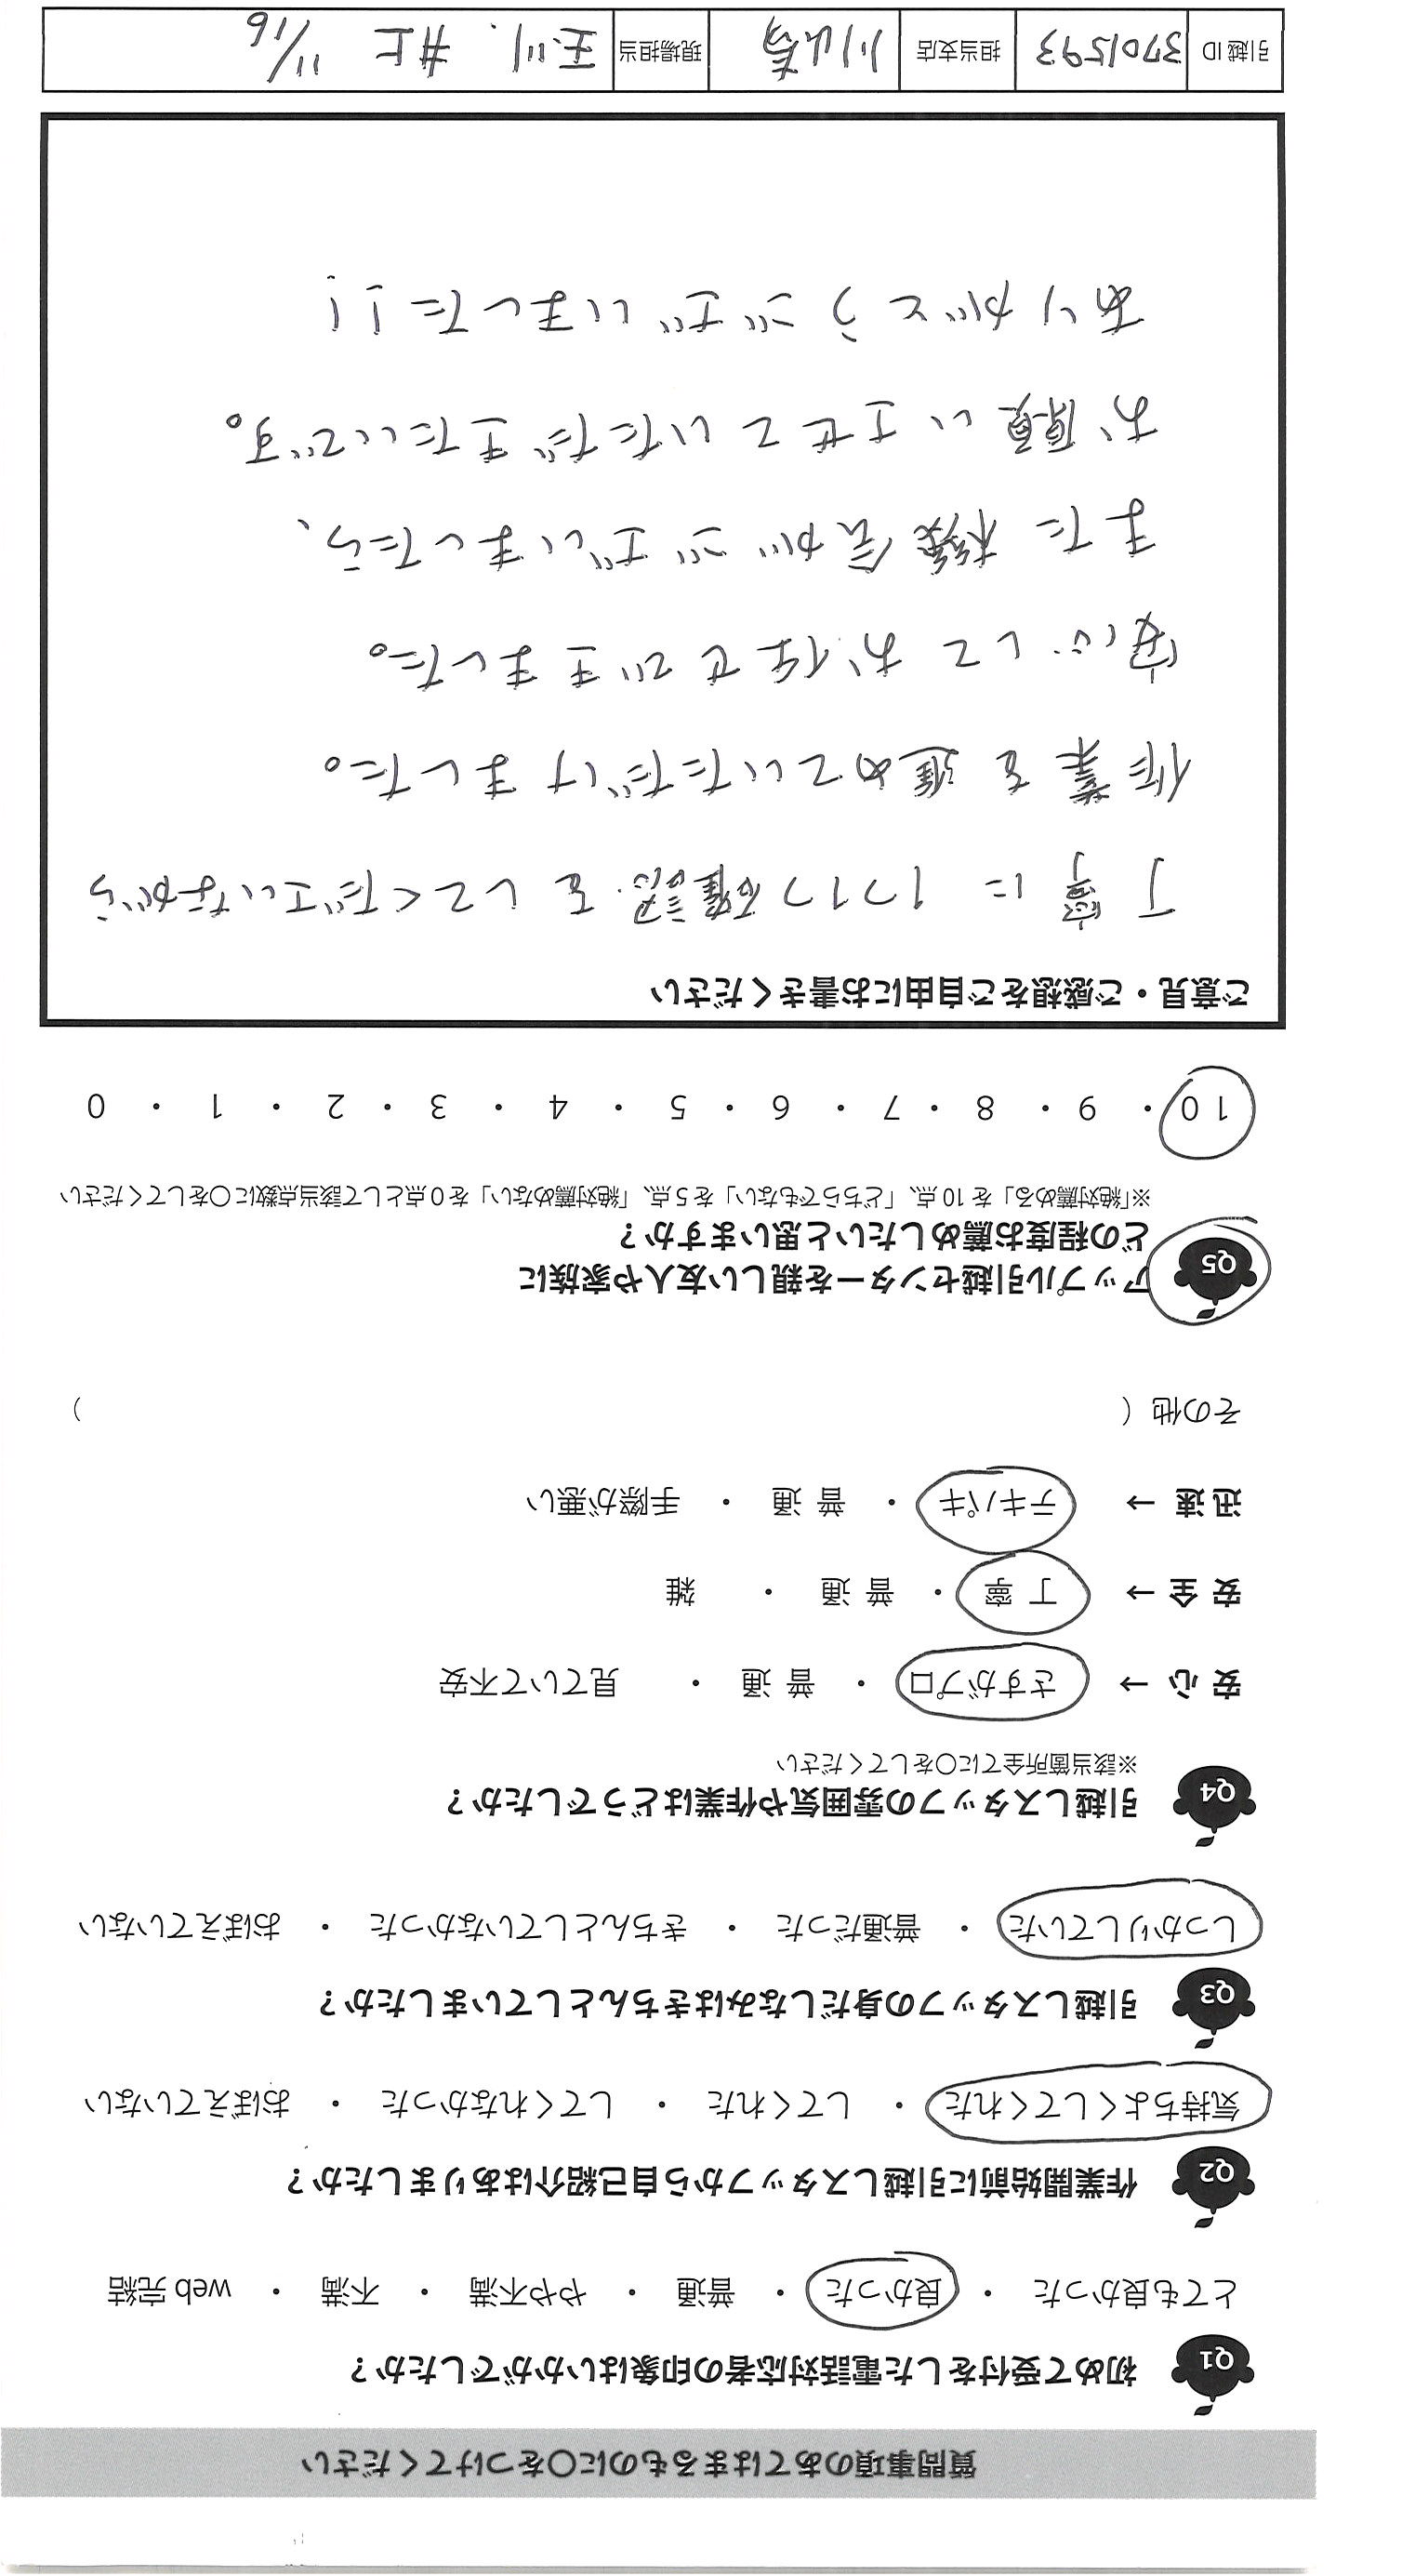 質問事項のあてはまるものに○をつけてください
Q1 初めて受付をした電話対応者の印象はいかがでしたか？
とても良かった ・ 良かった ・ 普通 ・ やや不満 ・ 不満 ・ web 完結
Q2 作業開始前に引越しスタッフから自己紹介はありましたか？
気持ちよくしてくれた ・ してくれた ・ してくれなかった ・ おぼえていない
Q3 引越しスタッフの身だしなみはきちんとしていましたか？
しっかりしていた ・ 普通だった ・ きちんとしていなかった ・ おぼえていない
Q4 引越しスタッフの雰囲気や作業はどうでしたか？
※該当箇所全てに○をしてください
安心 → さすがプロ ・ 普通 ・ 見ていて不安
安全 → 丁寧 ・ 普通 ・ 雑
迅速 → テキパキ ・ 普通 ・ 手際が悪い
その他（ ）
Q5 アップル引越センターを親しい友人や家族に
どの程度お薦めしたいと思いますか？
※「絶対薦める」を 10 点、「どちらでもない」を 5 点、「絶対薦めない」を 0 点として該当点数に○をしてください
10 ・ 9 ・ 8 ・ 7 ・ 6 ・ 5 ・ 4 ・ 3 ・ 2 ・ 1 ・ 0
ご意見・ご感想をご自由にお書きください
丁寧に 1つ1つ確認をしてくださいながら
作業を進めていただけました。
安心してお任せできました。
また機会がございましたら、
お願いさせていただきたいです。
ありがとうございました!!
引越 ID 3701593 担当支店 現場担当 玉川. 井上 11/16